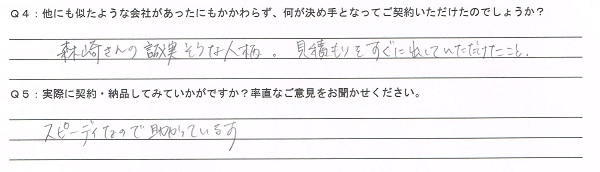 Q4：他にも似たような会社があったにもかかわらず、何が決め手となってご契約いただけたのでしょうか？
森崎さんの誠実そうな人柄。見積もりをすぐに出していただけたこと.
Q5：実際に契約・納品してみていかがですか？率直なご意見をお聞かせください。
スピーディなので助かっています